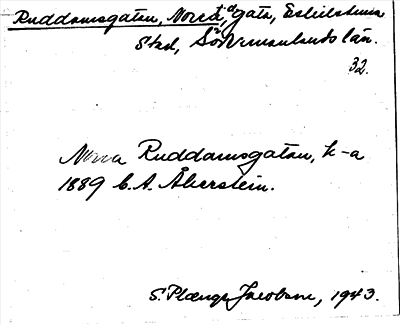 Ruddamsgatan, Norra, gata, Eskilstuna
stad, Södermanlands län.
32.
Norra Ruddamsgatan, k-a
1889 C. A. Åberstein.
S. Plænge Jacobson, 1943.